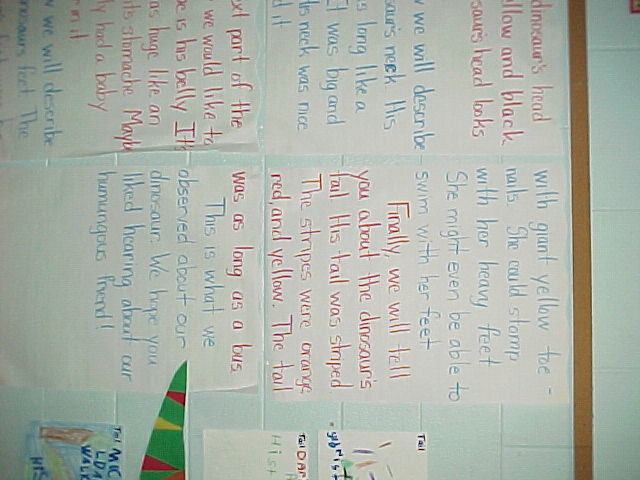 dinosaur's head
llow and black.
saur's head looks
w we will describe
saur's neck His
s long like a
It was big and
ts neck was nice
d it
ext part of the
we would like to
e is his belly It
as huge like an
ts stomache Mayb
r in it
ly had a baby
w we will describe
nosaurs feet The
with giant yellow toe-
nails. She could stomp
with her heavy feet
She might even be able to
swim with her feet
Finally, we will tell
you about the dinosaur's
tail His tail was striped
The stripes were orange
red, and yellow. The tail
was as long as a bus.
This is what we
observed about our
dinosaur. We hope you
liked hearing about our
humungous friend!
Tail
Tail
Tail